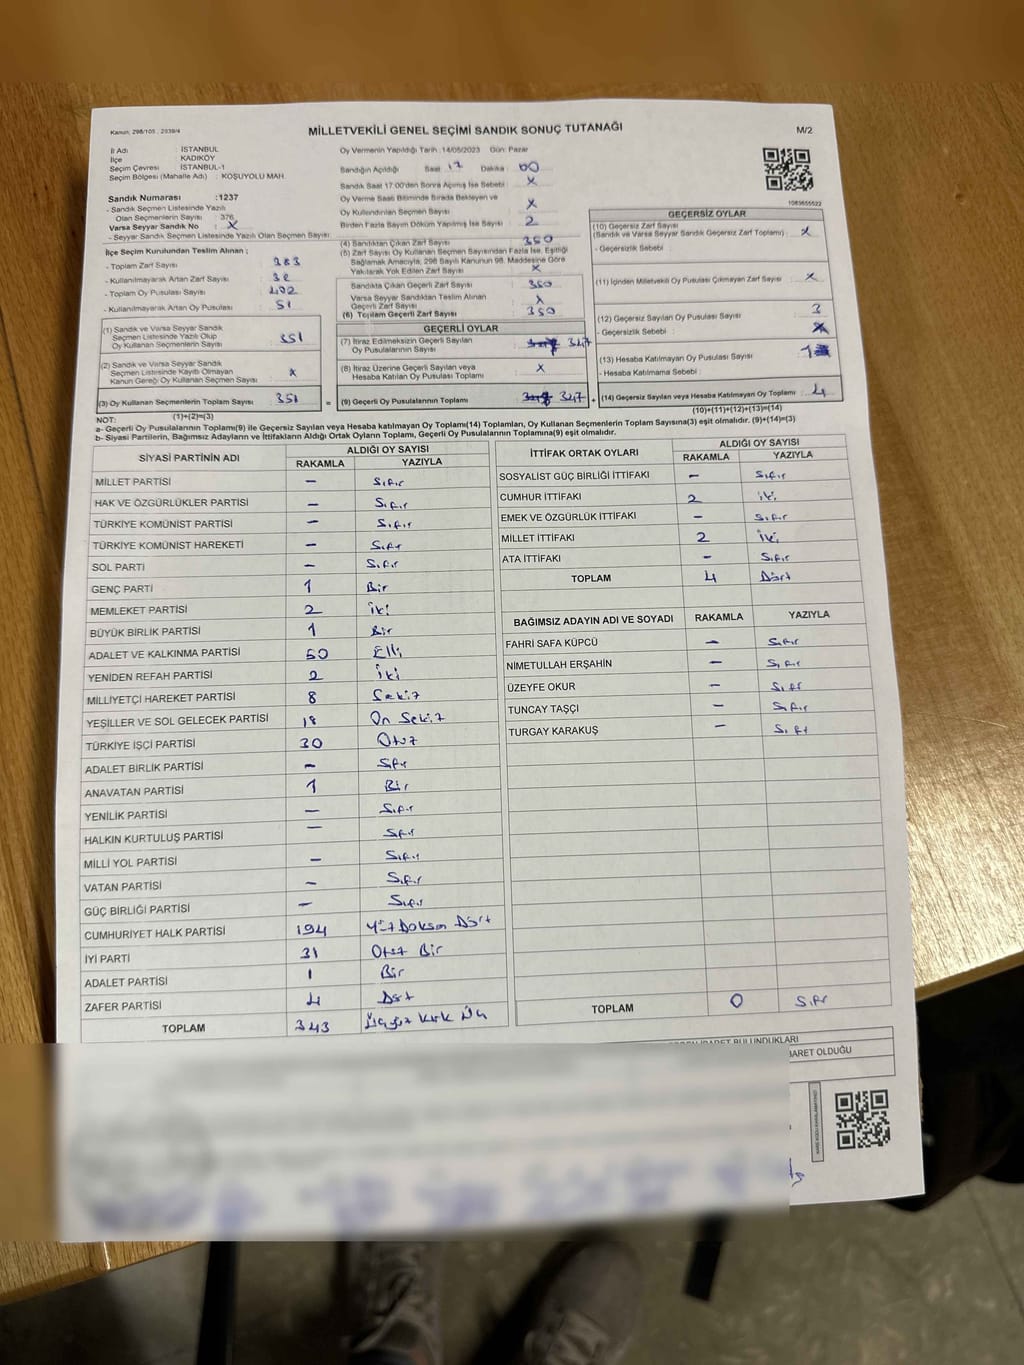 Kanun, 298/105 , 2839/4
MİLLETVEKİLİ GENEL SEÇİMİ SANDIK SONUÇ TUTANAĞI
M/2
İl Adı : İSTANBUL
İlçe : KADIKÖY
Seçim Çevresi : İSTANBUL-1
Seçim Bölgesi (Mahalle Adı) : KOŞUYOLU MAH.
Sandık Numarası :1237
- Sandık Seçmen Listesinde Yazılı
Olan Seçmenlerin Sayısı : 376
Varsa Seyyar Sandık No : X
- Seyyar Sandık Seçmen Listesinde Yazılı Olan Seçmen Sayısı:
Oy Vermenin Yapıldığı Tarih : 14/05/2023 Gün: Pazar
Sandığın Açıldığı Saat 17 Dakika : 00
Sandık Saat 17:00'den Sonra Açılmış İse Sebebi : X
Oy Verme Saati Bitiminde Sırada Bekleyen ve
Oy Kullandırılan Seçmen Sayısı : X
Birden Fazla Sayım Döküm Yapılmış İse Sayısı : 2
1083655522
İlçe Seçim Kurulundan Teslim Alınan ;
- Toplam Zarf Sayısı : 383
- Kullanılmayarak Artan Zarf Sayısı : 32
- Toplam Oy Pusulası Sayısı : 402
- Kullanılmayarak Artan Oy Pusulası : 51
(1) Sandık ve Varsa Seyyar Sandık
Seçmen Listesinde Yazılı Olup
Oy Kullanan Seçmenlerin Sayısı : 351
(2) Sandık ve Varsa Seyyar Sandık
Seçmen Listesinde Kayıtlı Olmayan
Kanun Gereği Oy Kullanan Seçmen Sayısı : X
(3) Oy Kullanan Seçmenlerin Toplam Sayısı : 351
(1)+(2)=(3)
(4) Sandıktan Çıkan Zarf Sayısı : 350
(5) Zarf Sayısı Oy Kullanan Seçmen Sayısından Fazla İse, Eşitliği
Sağlamak Amacıyla, 298 Sayılı Kanunun 98. Maddesine Göre
Yakılarak Yok Edilen Zarf Sayısı : X
Sandıkta Çıkan Geçerli Zarf Sayısı : 350
Varsa Seyyar Sandıktan Teslim Alınan
Geçerli Zarf Sayısı : X
(6) Toplam Geçerli Zarf Sayısı : 350
GEÇERLİ OYLAR
(7) İtiraz Edilmeksizin Geçerli Sayılan
Oy Pusulalarının Sayısı : 347
(8) İtiraz Üzerine Geçerli Sayılan veya
Hesaba Katılan Oy Pusulası Toplamı : X
= (9) Geçerli Oy Pusulalarının Toplamı : 347
GEÇERSİZ OYLAR
(10) Geçersiz Zarf Sayısı
(Sandık ve Varsa Seyyar Sandık Geçersiz Zarf Toplamı) : X
- Geçersizlik Sebebi :
(11) İçinden Milletvekili Oy Pusulası Çıkmayan Zarf Sayısı : X
(12) Geçersiz Sayılan Oy Pusulası Sayısı : 3
- Geçersizlik Sebebi : X
(13) Hesaba Katılmayan Oy Pusulası Sayısı : 1
- Hesaba Katılmama Sebebi :
+ (14) Geçersiz Sayılan veya Hesaba Katılmayan Oy Toplamı : 4
(10)+(11)+(12)+(13)=(14)
NOT:
a- Geçerli Oy Pusulalarının Toplamı(9) ile Geçersiz Sayılan veya Hesaba katılmayan Oy Toplamı(14) Toplamları, Oy Kullanan Seçmenlerin Toplam Sayısına(3) eşit olmalıdır. (9)+(14)=(3)
b- Siyasi Partilerin, Bağımsız Adayların ve İttifakların Aldığı Ortak Oyların Toplamı, Geçerli Oy Pusulalarının Toplamına(9) eşit olmalıdır.
SİYASİ PARTİNİN ADI ALDIĞI OY SAYISI
RAKAMLA YAZIYLA
MİLLET PARTİSİ — Sıfır
HAK VE ÖZGÜRLÜKLER PARTİSİ — Sıfır
TÜRKİYE KOMÜNİST PARTİSİ — Sıfır
TÜRKİYE KOMÜNİST HAREKETİ — Sıfır
SOL PARTİ — Sıfır
GENÇ PARTİ 1 Bir
MEMLEKET PARTİSİ 2 İki
BÜYÜK BİRLİK PARTİSİ 1 Bir
ADALET VE KALKINMA PARTİSİ 50 Elli
YENİDEN REFAH PARTİSİ 2 İki
MİLLİYETÇİ HAREKET PARTİSİ 8 Sekiz
YEŞİLLER VE SOL GELECEK PARTİSİ 18 On Sekiz
TÜRKİYE İŞÇİ PARTİSİ 30 Otuz
ADALET BİRLİK PARTİSİ — Sıfır
ANAVATAN PARTİSİ 1 Bir
YENİLİK PARTİSİ — Sıfır
HALKIN KURTULUŞ PARTİSİ — Sıfır
MİLLİ YOL PARTİSİ — Sıfır
VATAN PARTİSİ — Sıfır
GÜÇ BİRLİĞİ PARTİSİ — Sıfır
CUMHURİYET HALK PARTİSİ 194 Yüz Doksan Dört
İYİ PARTİ 31 Otuz Bir
ADALET PARTİSİ 1 Bir
ZAFER PARTİSİ 4 Dört
TOPLAM 343 Üçyüz Kırk Üç
İTTİFAK ORTAK OYLARI ALDIĞI OY SAYISI
RAKAMLA YAZIYLA
SOSYALİST GÜÇ BİRLİĞİ İTTİFAKI — Sıfır
CUMHUR İTTİFAKI 2 iki
EMEK VE ÖZGÜRLÜK İTTİFAKI — Sıfır
MİLLET İTTİFAKI 2 iki
ATA İTTİFAKI — Sıfır
TOPLAM 4 Dört
BAĞIMSIZ ADAYIN ADI VE SOYADI RAKAMLA YAZIYLA
FAHRİ SAFA KÜPCÜ — Sıfır
NİMETULLAH ERŞAHİN — Sıfır
ÜZEYFE OKUR — Sıfır
TUNCAY TAŞÇI — Sıfır
TURGAY KARAKUŞ — Sıfır
TOPLAM 0 Sıfır
BULUNDUKLARI
İBARET OLDUĞU